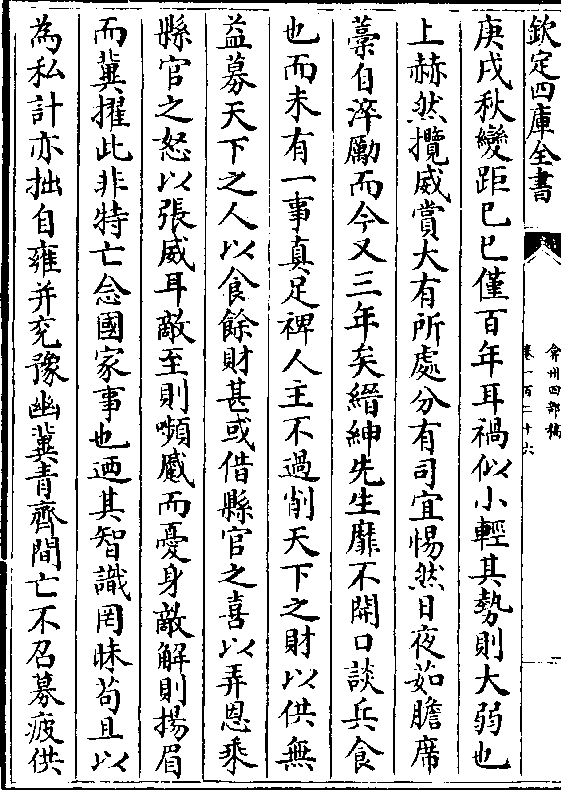 欽定四庫全書
弇州四部稿
卷一百二十六
庚戌秋變距己巳僅百年耳禍似小輕其勢則大弱也
上赫然攬威賞大有所處分有司宜惕然日夜茹膽席
藁自淬勵而今又三年矣縉紳先生靡不開口談兵食
也而未有一事真足裨人主不過削天下之財以供無
益募天下之人以食餘財甚或借縣官之喜以弄恩乘
縣官之怒以張威耳敵至則嚬蹙而憂身敵解則揚眉
而冀擢此非特亡念國家事也迺其智識罔昧苟且以
為私計亦拙自雍并兖豫幽冀青齊間亡不召募疲供